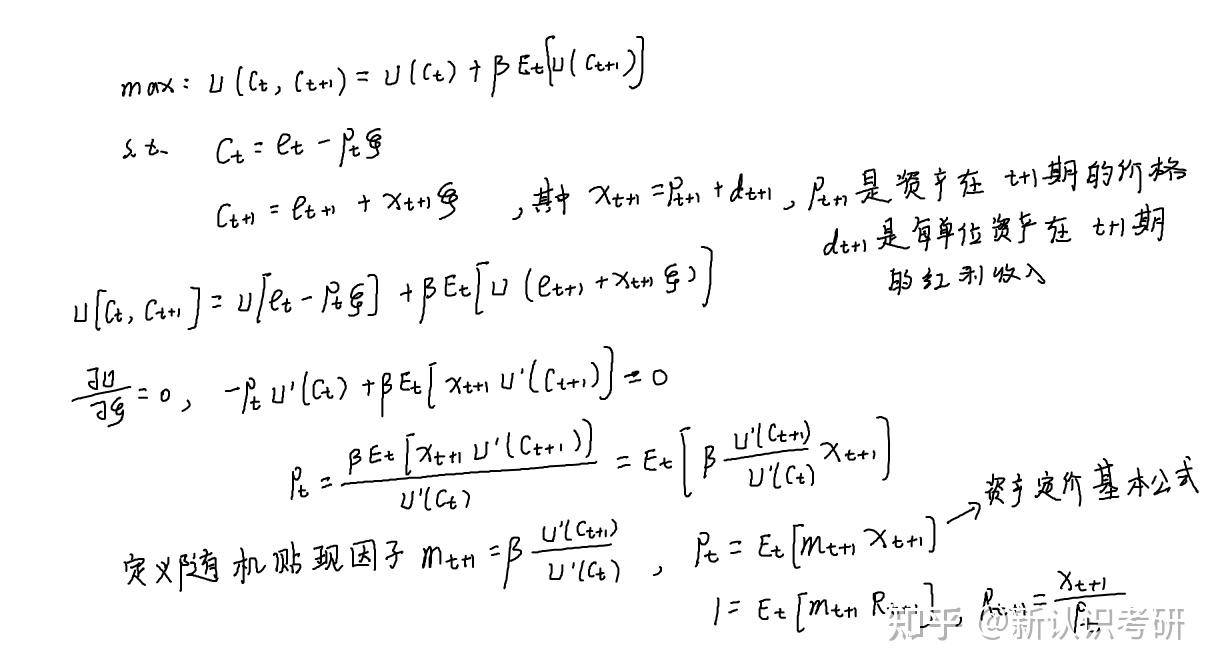 max: U(Ct, Ct+1) = U(Ct) + βEt[U(Ct+1)]
s.t. Ct = et - Ptξ
Ct+1 = et+1 + xt+1ξ ,其中 xt+1 = Pt+1 + dt+1 , Pt+1是资产在 t+1期的价格
dt+1是每单位资产在 t+1期
的红利收入
U[Ct, Ct+1] = U[et - Ptξ] + βEt[U(et+1 + xt+1ξ)]
∂U/∂ξ = 0, -PtU'(Ct) + βEt[xt+1U'(Ct+1)] = 0
Pt = βEt[xt+1U'(Ct+1)]/U'(Ct) = Et[β U'(Ct+1)/U'(Ct) xt+1]
资产定价基本公式
定义随机贴现因子 mt+1 = β U'(Ct+1)/U'(Ct) , Pt = Et[mt+1xt+1]
1 = Et[mt+1Rt+1], Rt+1 = xt+1/Pt
知乎 @新认识考研